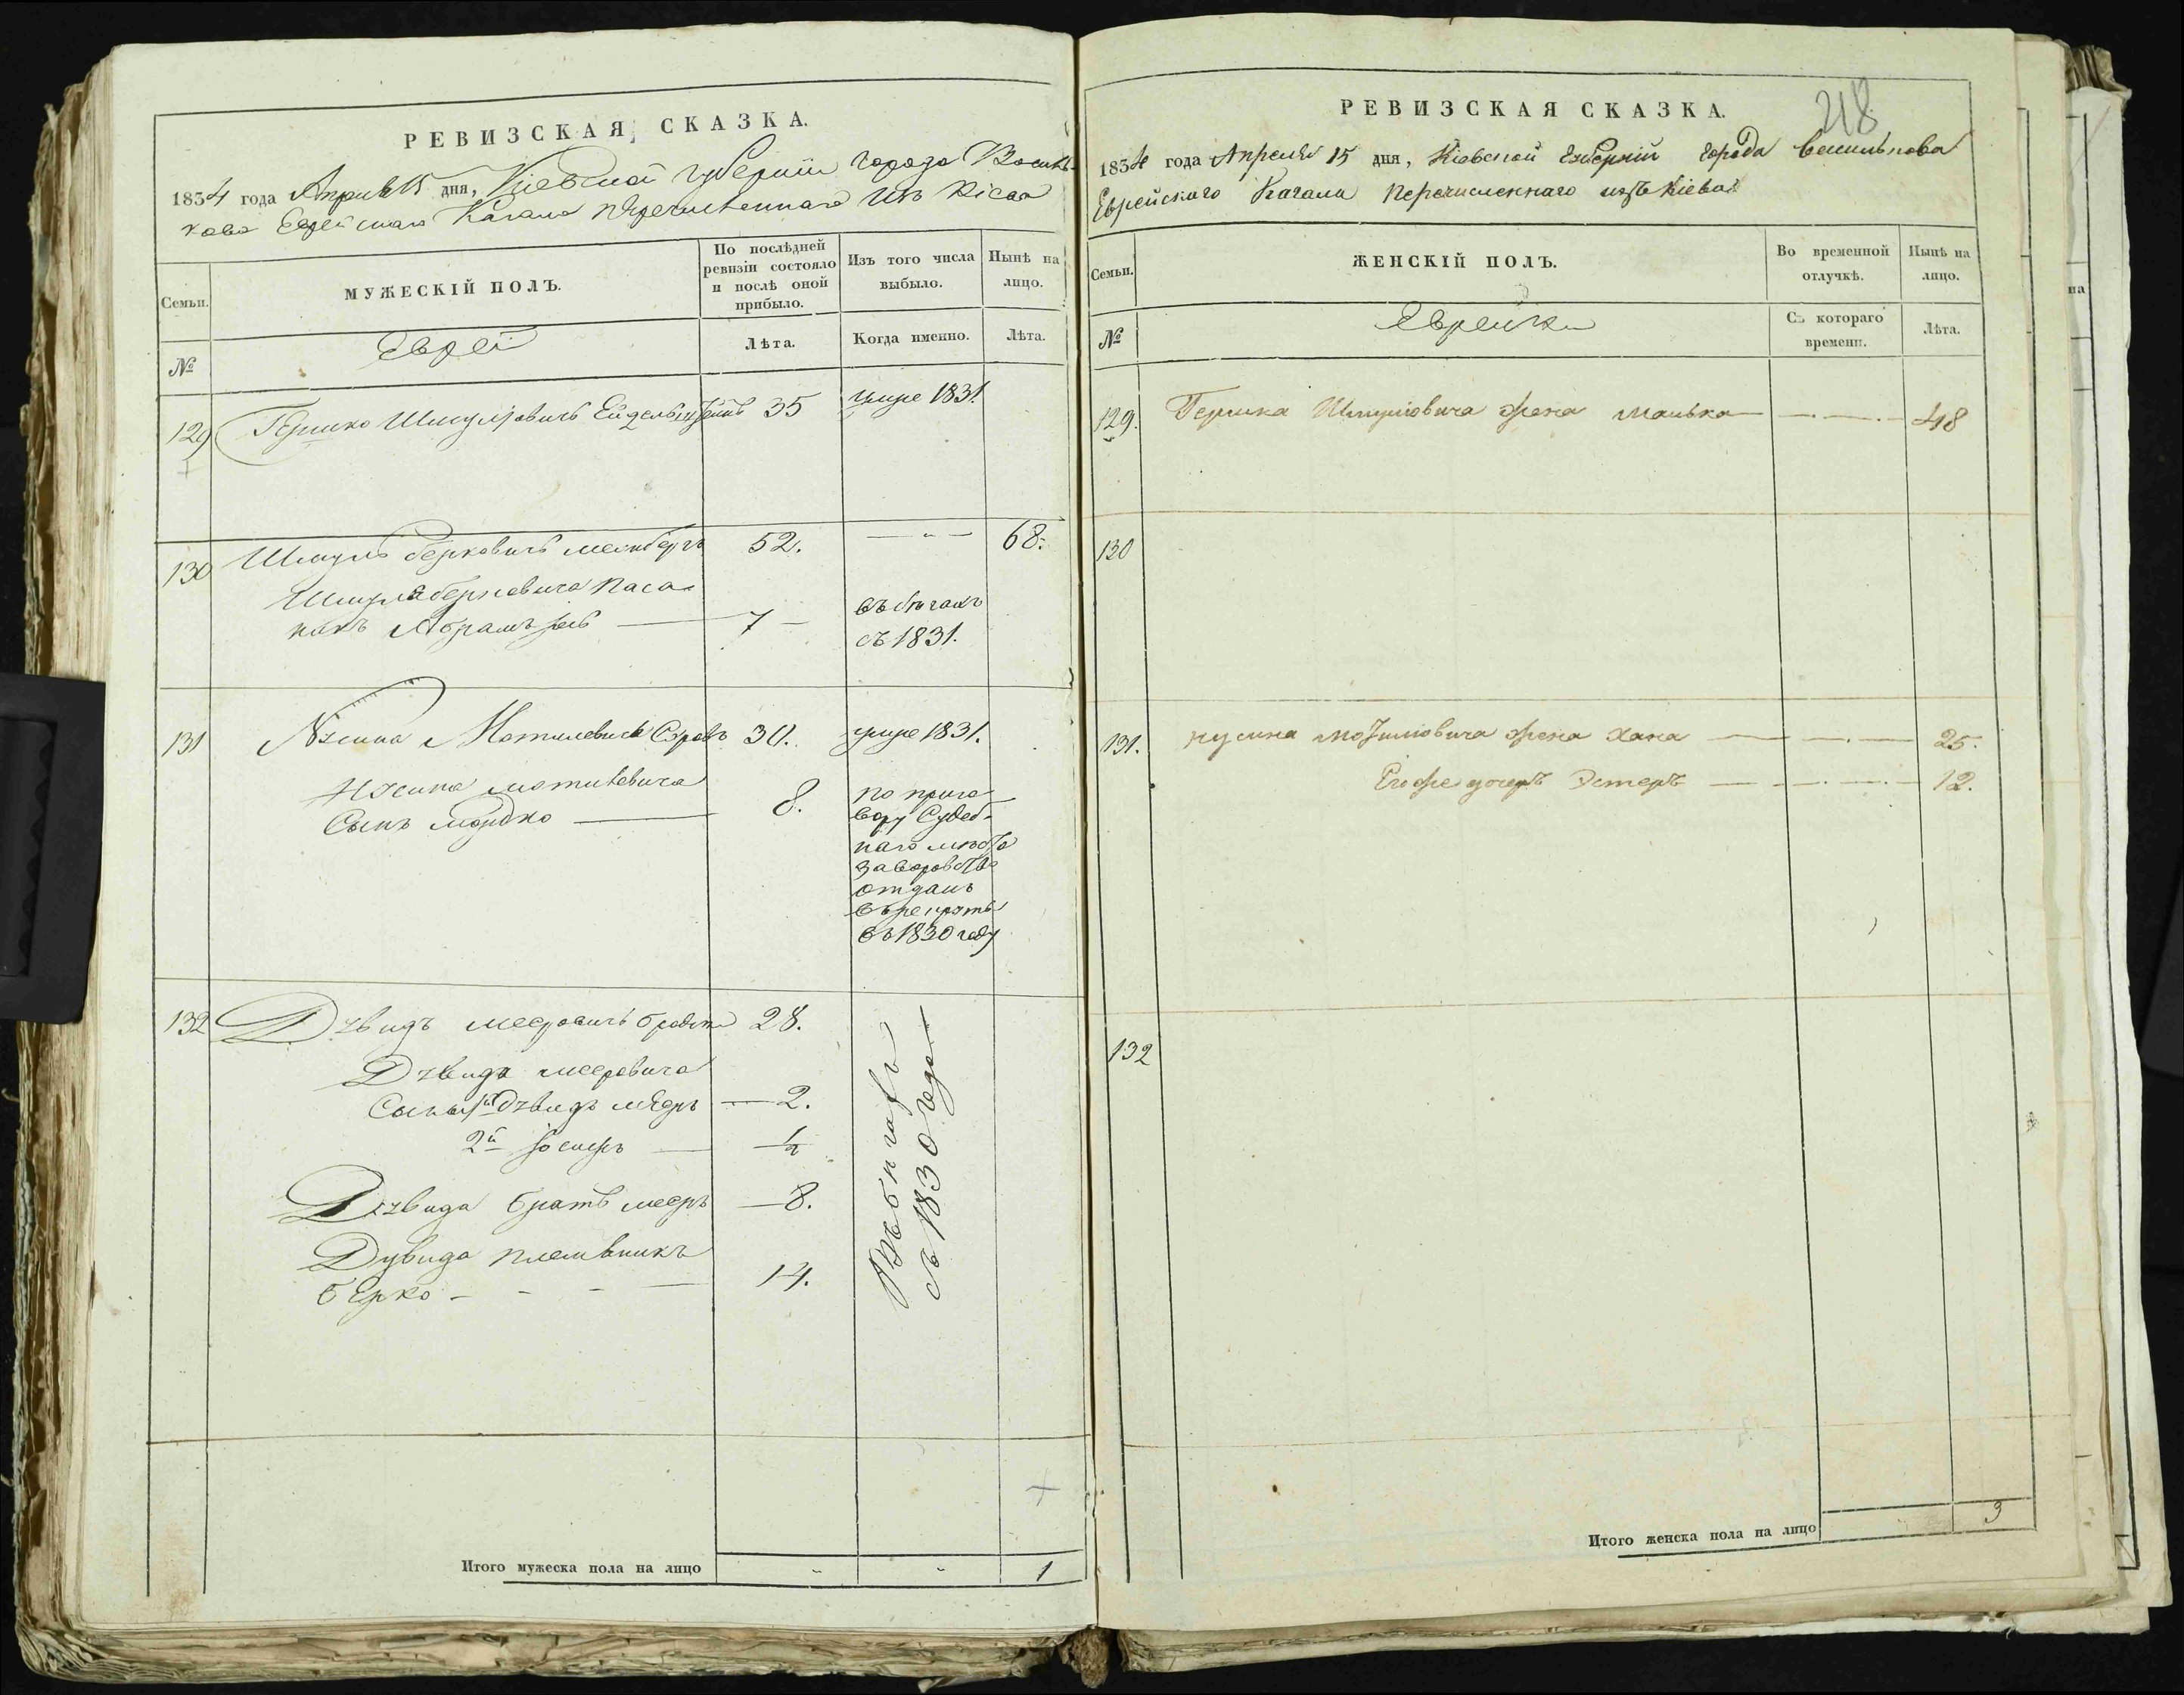 РЕВИЗСКАЯ СКАЗКА.
1834 года Апреля 15 дня, Кіевской губерніи города Василь-
кова Еврейскаго Кагала перечисленнаго изъ Кіева
Семьи.
МУЖЕСКІЙ ПОЛЪ.
По послѣдней ревизіи состояло и послѣ оной прибыло.
Изъ того числа выбыло.
Нынѣ на лицо.
№
Еврей
Лѣта.
Когда именно.
Лѣта.
129 Гершко Шмулiовичъ 35 умре 1831.
130 Шмуль Берковичъ 52. 68.
Шмуля Берковича паса-
нокъ Абрамъ 7 въ бѣгахъ
съ 1831.
131 Нусина Мотилевичъ 30. умре 1831.
Нусина Мотилевича
Сынъ Мордко 8. по приго-
вору Судеб-
наго мѣста
за воровство
отданъ
въ рекруты
въ 1830 году
132 Дувидъ Мееровичъ 28.
Дувида Мееровича
Сыны 1й Дувидъ Мееръ 2.
2й Іосифъ 1/2
Дувида братъ Мееръ 8.
Дувида племвникъ
Берко 14.
Въ бѣгахъ
съ 1830 года
Итого мужеска пола на лицо 1
218
РЕВИЗСКАЯ СКАЗКА.
1834 года Апреля 15 дня, Кіевской губерніи города Василькова
Еврейскаго Кагала перечисленнаго изъ Кіева
Семьи.
ЖЕНСКІЙ ПОЛЪ.
Во временной отлучкѣ.
Нынѣ на лицо.
№
Еврейки
Съ котораго времени.
Лѣта.
129. Гершка Шмуліовича жена Малька 48
130
131. Нусина Мотиліовича жена Хана 25.
Его же дочерь Эстеръ 12.
132
Итого женска пола на лицо 3